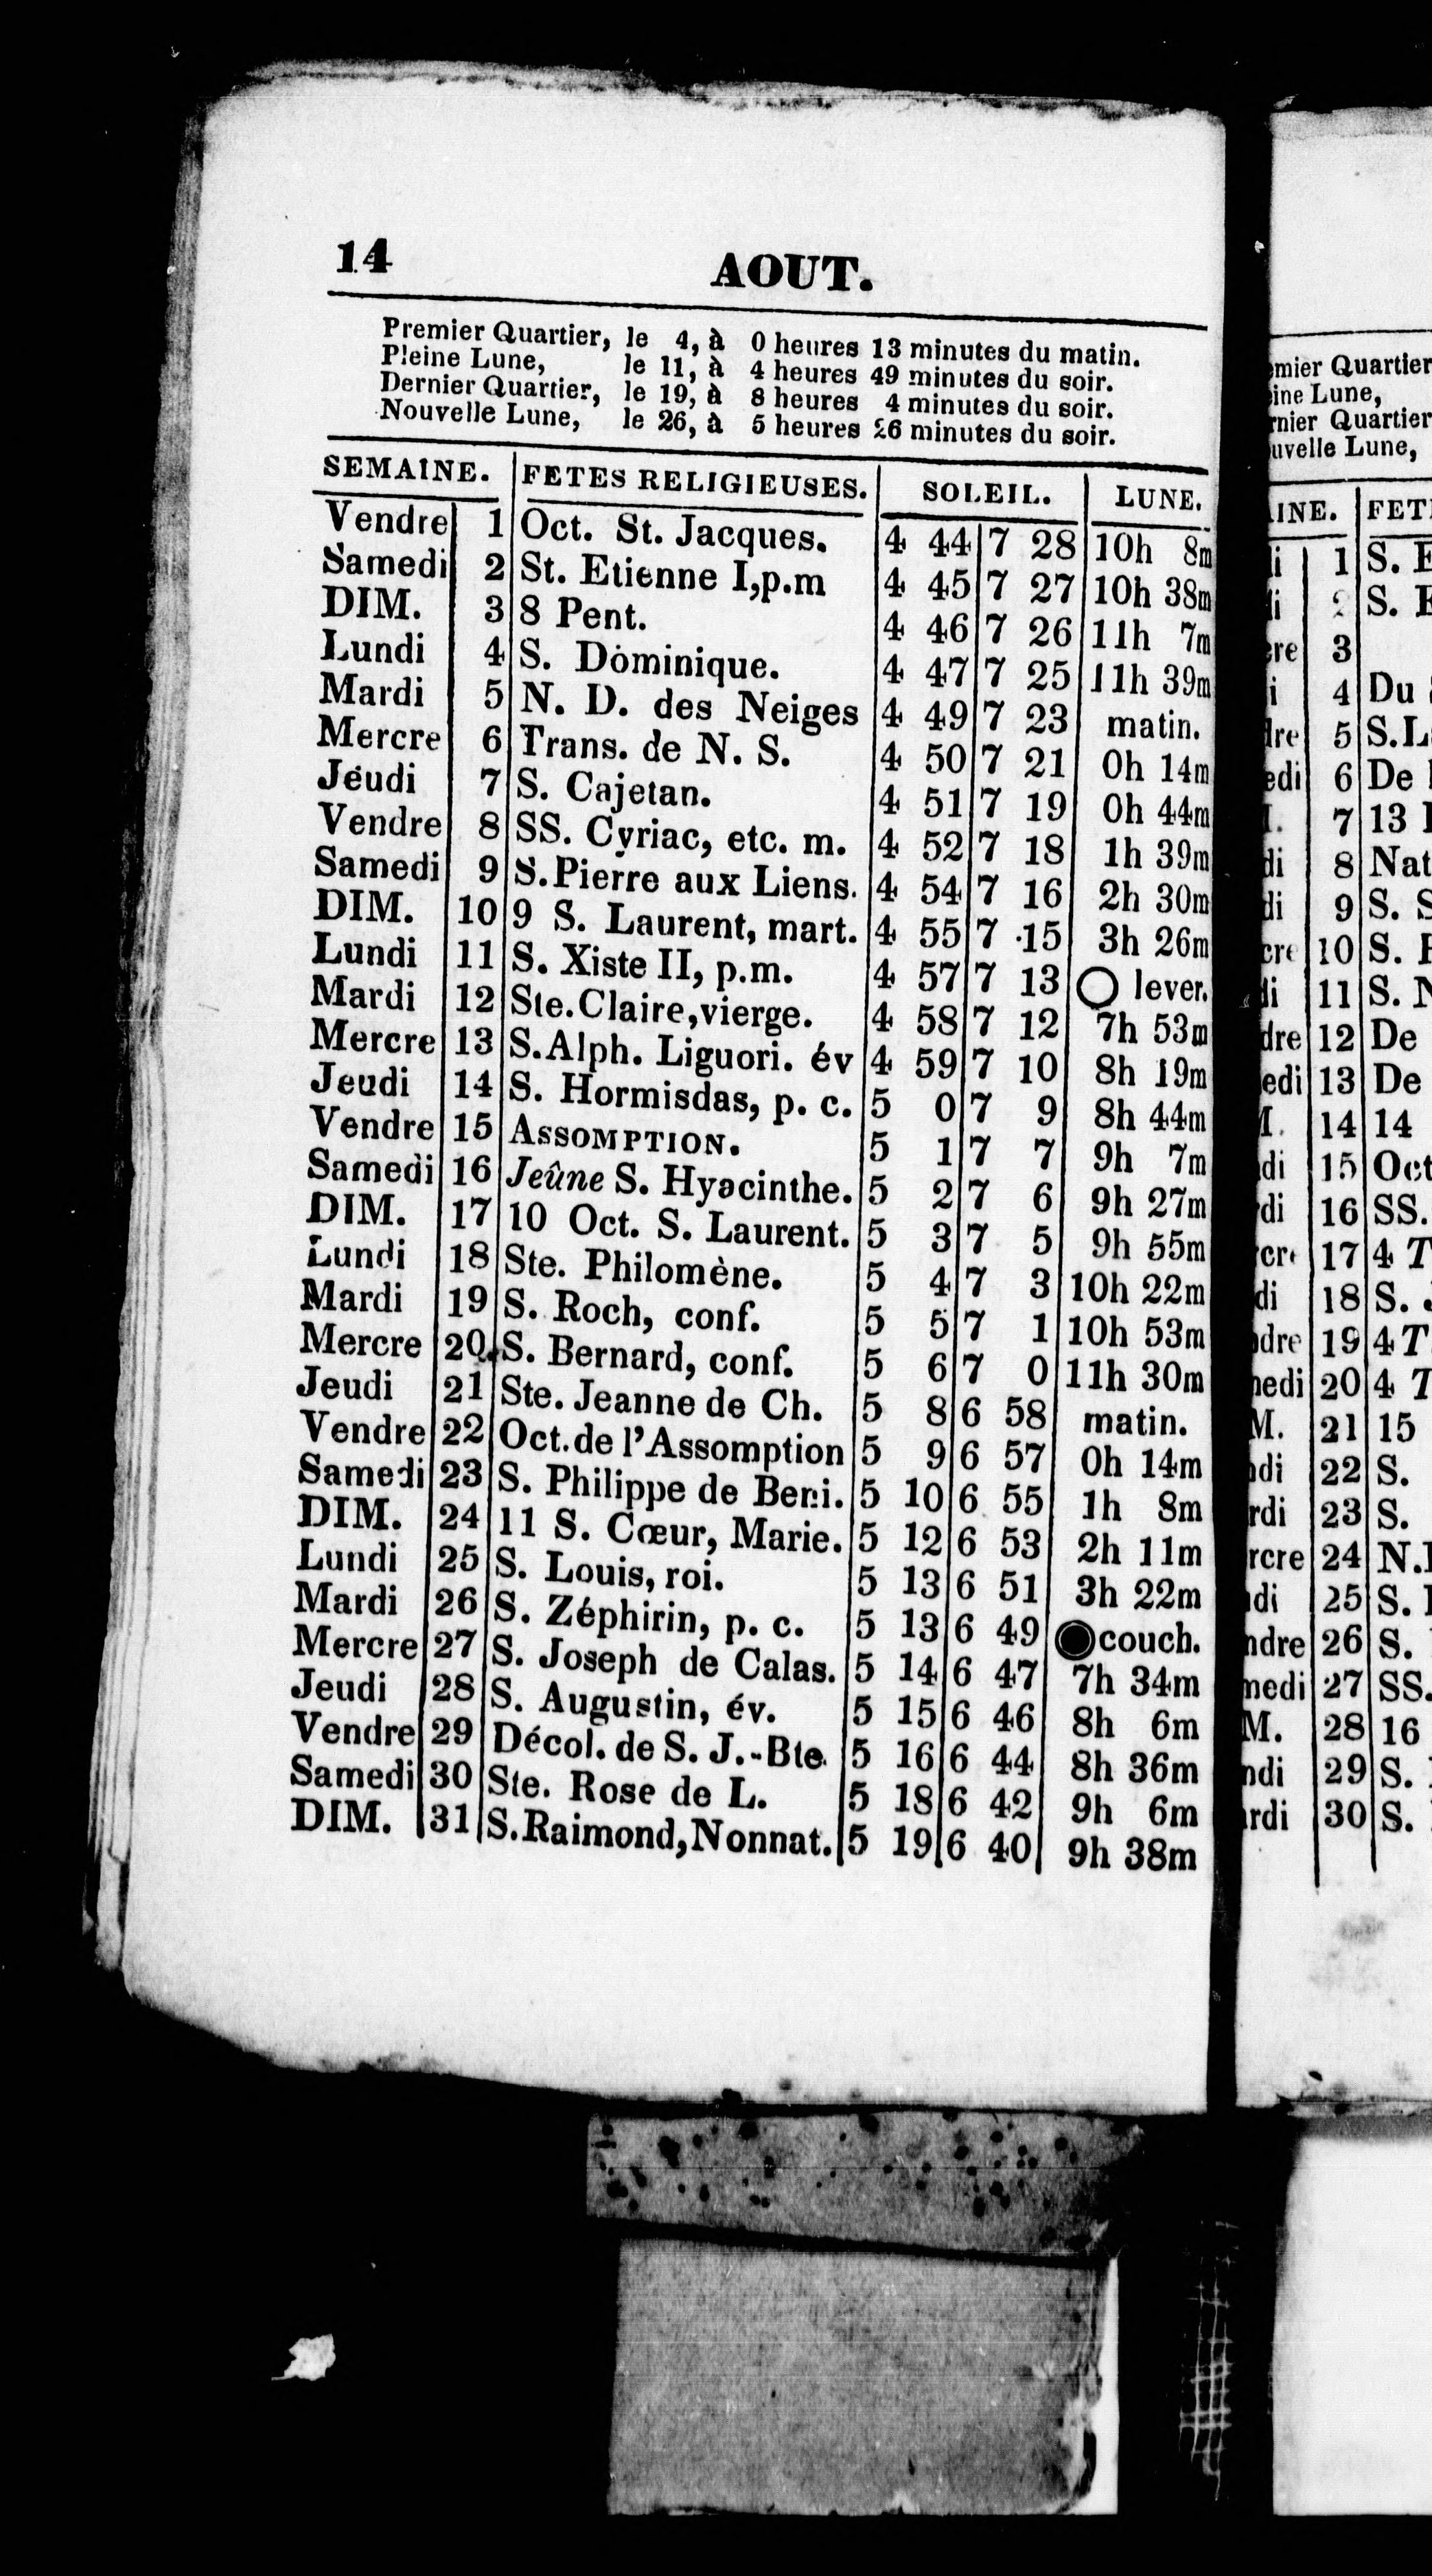 14
AOUT.
Premier Quartier, le 4, à 0 heures 13 minutes du matin.
Pleine Lune, le 11, à 4 heures 49 minutes du soir.
Dernier Quartier, le 19, à 8 heures 4 minutes du soir.
Nouvelle Lune, le 26, à 5 heures 26 minutes du soir.
SEMAINE. FETES RELIGIEUSES. SOLEIL. LUNE.
Vendre 1 Oct. St. Jacques. 4 44 7 28 10h 8m
Samedi 2 St. Etienne I,p.m 4 45 7 27 10h 38m
DIM. 3 8 Pent. 4 46 7 26 11h 7m
Lundi 4 S. Dominique. 4 47 7 25 11h 39m
Mardi 5 N. D. des Neiges 4 49 7 23 matin.
Mercre 6 Trans. de N. S. 4 50 7 21 0h 14m
Jeudi 7 S. Cajetan. 4 51 7 19 0h 44m
Vendre 8 SS. Cyriac, etc. m. 4 52 7 18 1h 39m
Samedi 9 S.Pierre aux Liens. 4 54 7 16 2h 30m
DIM. 10 9 S. Laurent, mart. 4 55 7 15 3h 26m
Lundi 11 S. Xiste II, p.m. 4 57 7 13 lever.
Mardi 12 Ste.Claire,vierge. 4 58 7 12 7h 53m
Mercre 13 S.Alph. Liguori. év 4 59 7 10 8h 19m
Jeudi 14 S. Hormisdas, p. c. 5 0 7 9 8h 44m
Vendre 15 ASSOMPTION. 5 1 7 7 9h 7m
Samedi 16 Jeûne S. Hyacinthe. 5 2 7 6 9h 27m
DIM. 17 10 Oct. S. Laurent. 5 3 7 5 9h 55m
Lundi 18 Ste. Philomène. 5 4 7 3 10h 22m
Mardi 19 S. Roch, conf. 5 5 7 1 10h 53m
Mercre 20 S. Bernard, conf. 5 6 7 0 11h 30m
Jeudi 21 Ste. Jeanne de Ch. 5 8 6 58 matin.
Vendre 22 Oct.de l'Assomption 5 9 6 57 0h 14m
Samedi 23 S. Philippe de Beni. 5 10 6 55 1h 8m
DIM. 24 11 S. Cœur, Marie. 5 12 6 53 2h 11m
Lundi 25 S. Louis, roi. 5 13 6 51 3h 22m
Mardi 26 S. Zéphirin, p. c. 5 13 6 49 couch.
Mercre 27 S. Joseph de Calas. 5 14 6 47 7h 34m
Jeudi 28 S. Augustin, év. 5 15 6 46 8h 6m
Vendre 29 Décol. de S. J.-Bte. 5 16 6 44 8h 36m
Samedi 30 Ste. Rose de L. 5 18 6 42 9h 6m
DIM. 31 S.Raimond,Nonnat. 5 19 6 40 9h 38m
Quartier
Lune,
Quartier
Lune,
1 S.
2 S.
3
4 Du
5
6 De
7 13
8
9 S.
10 S.
11 S.
12 De
13 De
14 14
15
16 SS.
17 4
18 S.
19 4
20 4
21 15
22 S.
23 S.
24
25 S.
26 S.
27 SS.
28 16
29 S.
30 S.